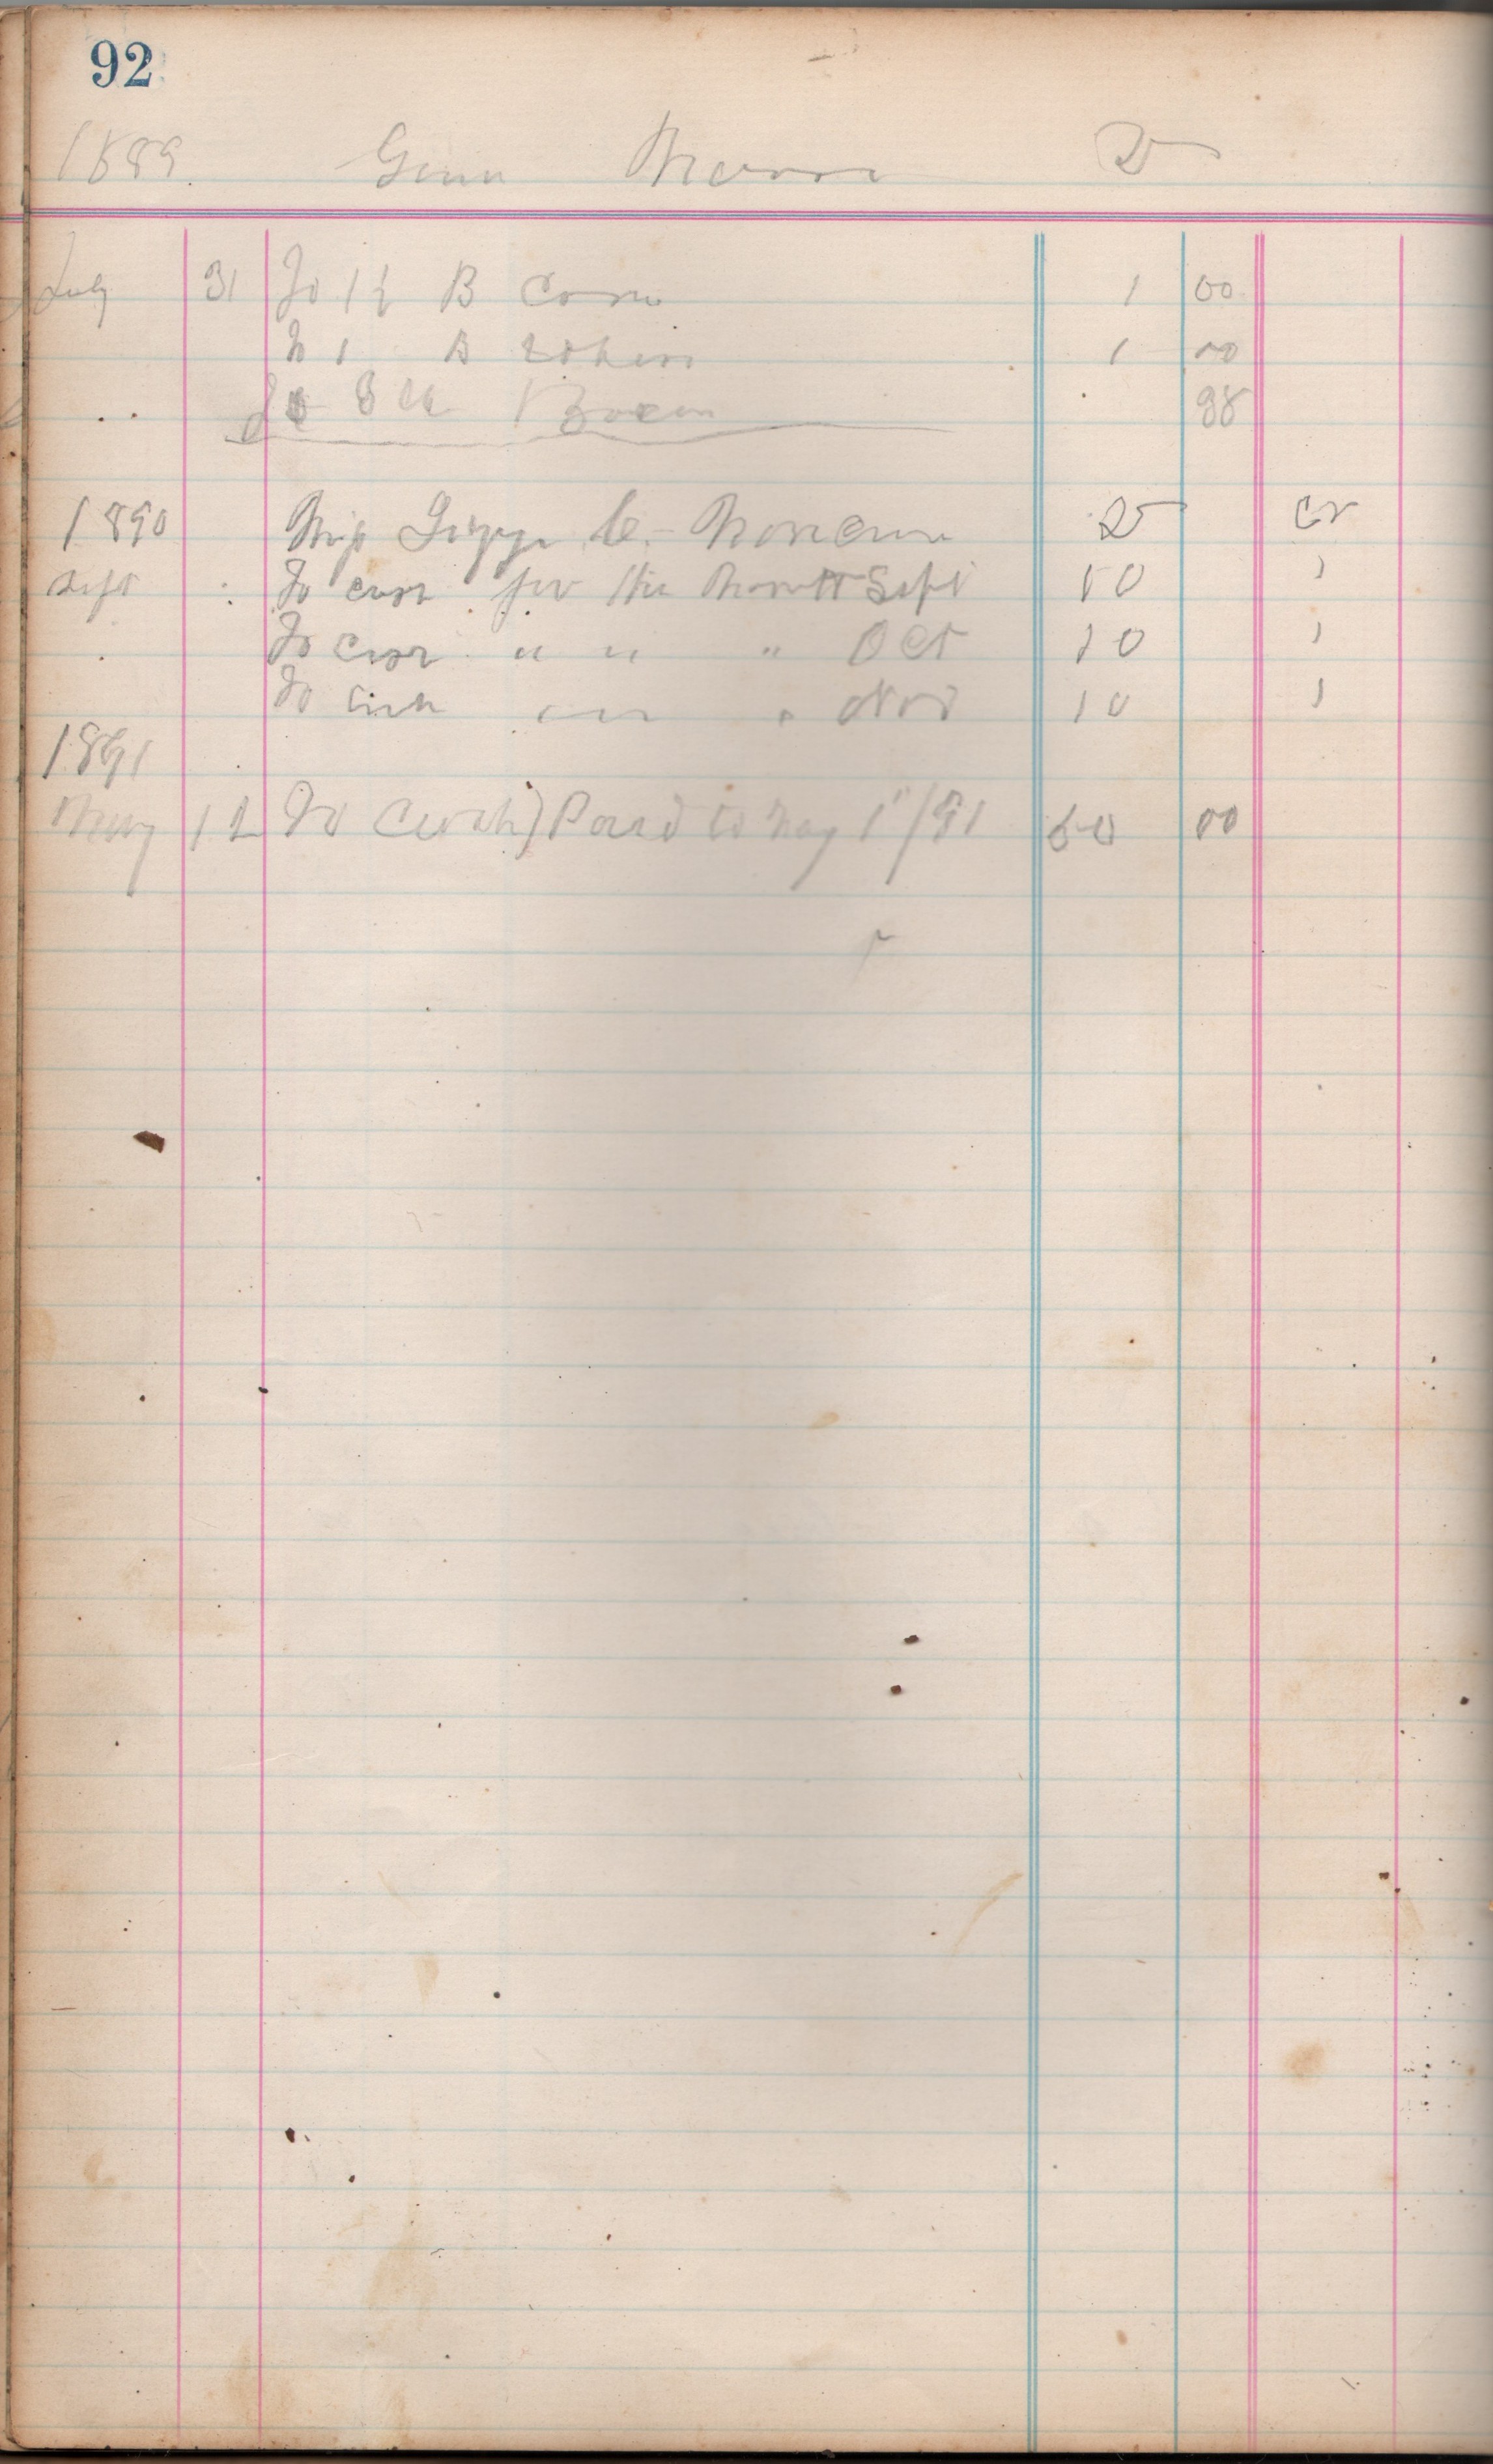 92
1889.
July 31 To 1½ B Corn 1 00
To 1 B 1 00
To 8 lb Bacon 98
1890 Miss C. Dr Cr
Sept To cash for the Month Sept 10
To cash " " " Oct 10
To cash " Nov 10
1891
May 12 To Cash Paid to May 1"/91 60 00